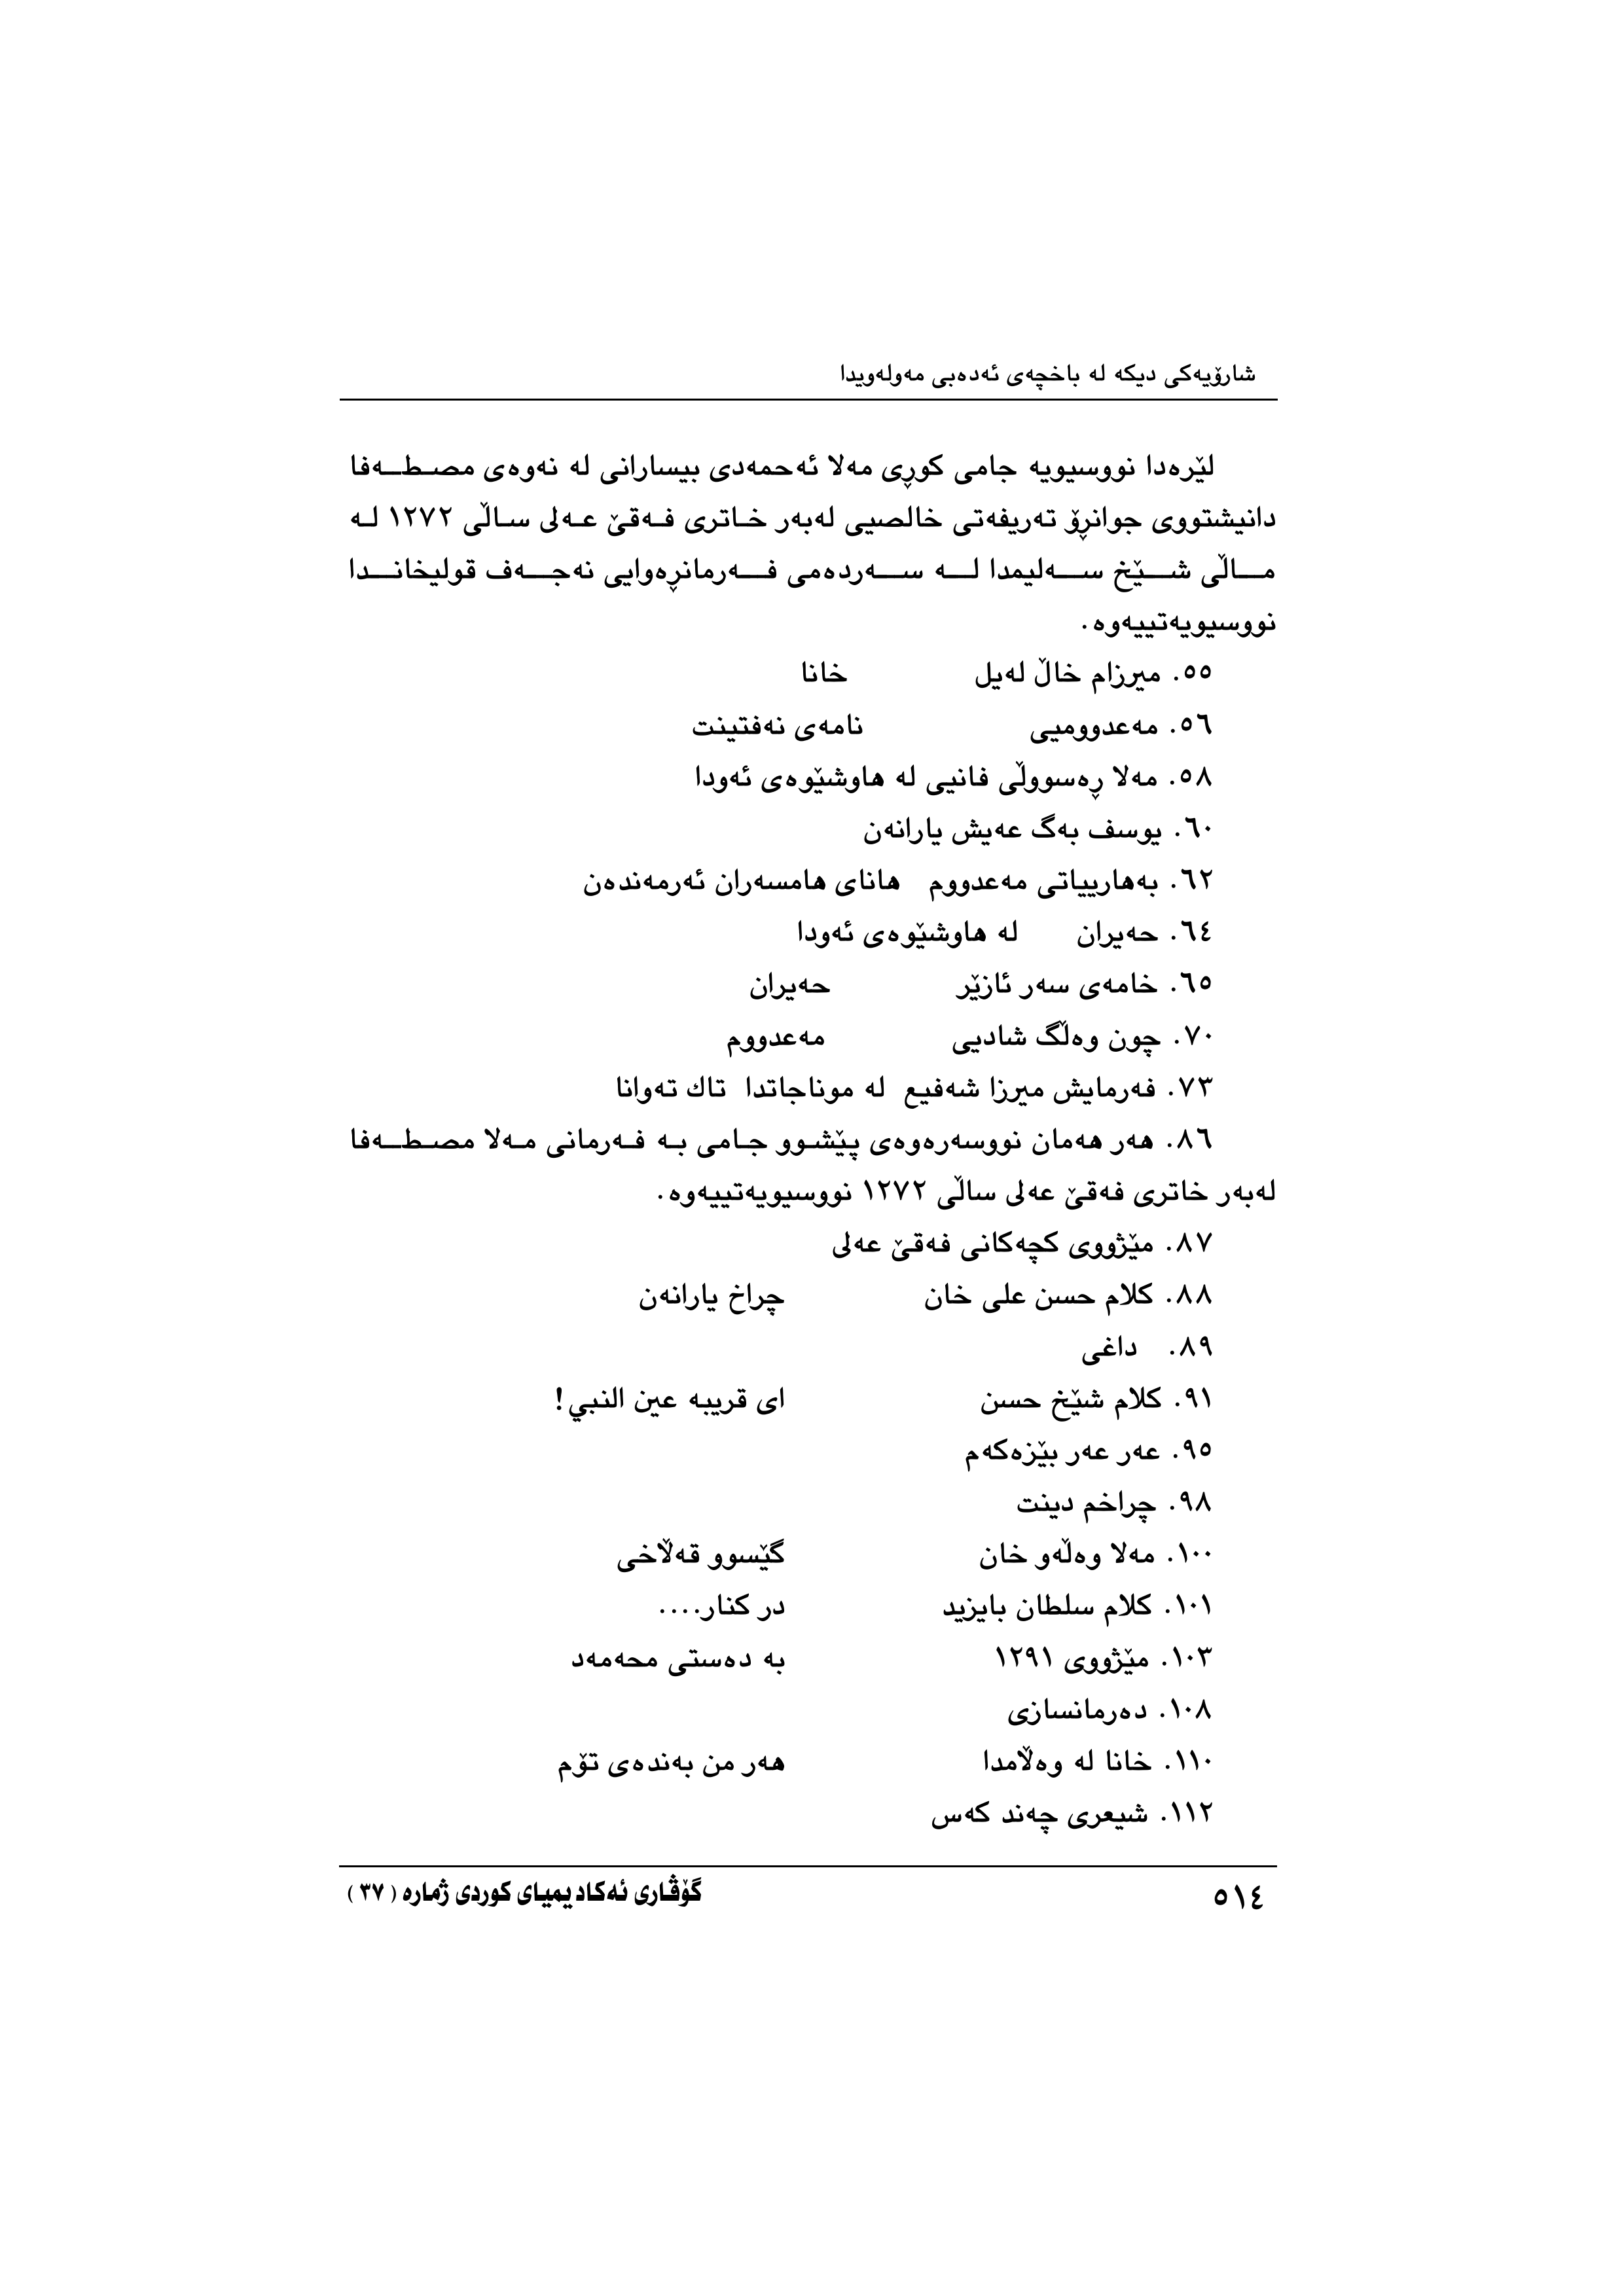 شارۆیەکی دیکە لە باخچەی ئەدەبی مەولەویدا
لێرەدا نووسیویە جامی کوڕی مەلا ئەحمەدی بیسارانی لە نەوەی مصطەفا
دانیشتووی جوانڕۆ تەریفەتی خالصیی لەبەر خاتری فەقێ عەلی ساڵی ١٢٧٢ لە
ماڵی شێخ سەلیمدا لە سەردەمی فەرمانڕەوایی نەجەف قولیخاندا
نووسیویەتییەوە.
٥٥. میرزام خاڵ لەیل خانا
٥٦. مەعدوومیی نامەی نەفتینت
٥٨. مەلا ڕەسووڵی فانیی لە هاوشێوەی ئەودا
٦٠. یوسف بەگ عەیش یارانەن
٦٢. بەهارییاتی مەعدووم هانای هامسەران ئەرمەندەن
٦٤. حەیران لە هاوشێوەی ئەودا
٦٥. خامەی سەر ئازێر حەیران
٧٠. چون وەڵگ شادیی مەعدووم
٧٣. فەرمایش میرزا شەفیع لە موناجاتدا تاك تەوانا
٨٦. هەر هەمان نووسەرەوەی پێشوو جامی بە فەرمانی مەلا مصطەفا
لەبەر خاتری فەقێ عەلی ساڵی ١٢٧٢ نووسیویەتییەوە.
٨٧. مێژووی کچەکانی فەقێ عەلی
٨٨. کلام حسن علی خان چراخ یارانەن
٨٩. داغی
٩١. کلام شێخ حسن ای قریبە عین النبي!
٩٥. عەر عەر بێزەکەم
٩٨. چراخم دینت
١٠٠. مەلا وەڵەو خان گێسوو قەڵاخی
١٠١. کلام سلطان بایزید در کنار....
١٠٣. مێژووی ١٢٩١ بە دەستی محەمەد
١٠٨. دەرمانسازی
١١٠. خانا لە وەڵامدا هەر من بەندەی تۆم
١١٢. شیعری چەند کەس
٥١٤ گۆڤاری ئەکادیمیای کوردی ژمارە ( ٣٧ )